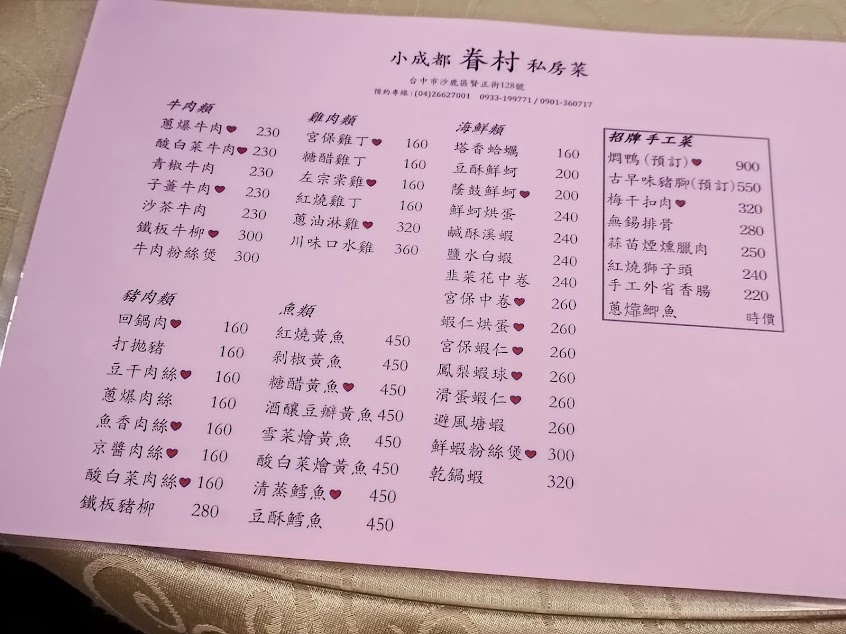 小成都 眷村 私房菜
台中市沙鹿區賢正街128號
預約專線：(04)26627001 0933-199771 / 0901-360717
牛肉類
蔥爆牛肉♥ 230
酸白菜牛肉♥ 230
青椒牛肉 230
子薑牛肉♥ 230
沙茶牛肉 230
鐵板牛柳♥ 300
牛肉粉絲煲 300
雞肉類
宮保雞丁♥ 160
糖醋雞丁 160
左宗棠雞♥ 160
紅燒雞丁 160
蔥油淋雞♥ 320
川味口水雞 360
海鮮類
塔香蛤蠣 160
豆酥鮮蚵 200
蔭鼓鮮蚵♥ 200
鮮蚵烘蛋 240
鹹酥溪蝦 240
鹽水白蝦 240
韭菜花中卷 240
宮保中卷♥ 260
蝦仁烘蛋♥ 260
宮保蝦仁♥ 260
鳳梨蝦球♥ 260
滑蛋蝦仁♥ 260
避風塘蝦 260
鮮蝦粉絲煲♥ 300
乾鍋蝦 320
招牌手工菜
燜鴨(預訂)♥ 900
古早味豬腳(預訂) 550
梅干扣肉♥ 320
無錫排骨 280
蒜苗煙燻臘肉 250
紅燒獅子頭 240
手工外省香腸 220
蔥㸆鯽魚 時價
豬肉類
回鍋肉♥ 160
打拋豬 160
豆干肉絲♥ 160
蔥爆肉絲 160
魚香肉絲♥ 160
京醬肉絲♥ 160
酸白菜肉絲♥ 160
鐵板豬柳 280
魚類
紅燒黃魚 450
剁椒黃魚 450
糖醋黃魚♥ 450
酒釀豆瓣黃魚 450
雪菜燴黃魚 450
酸白菜燴黃魚 450
清蒸鱈魚♥ 450
豆酥鱈魚 450